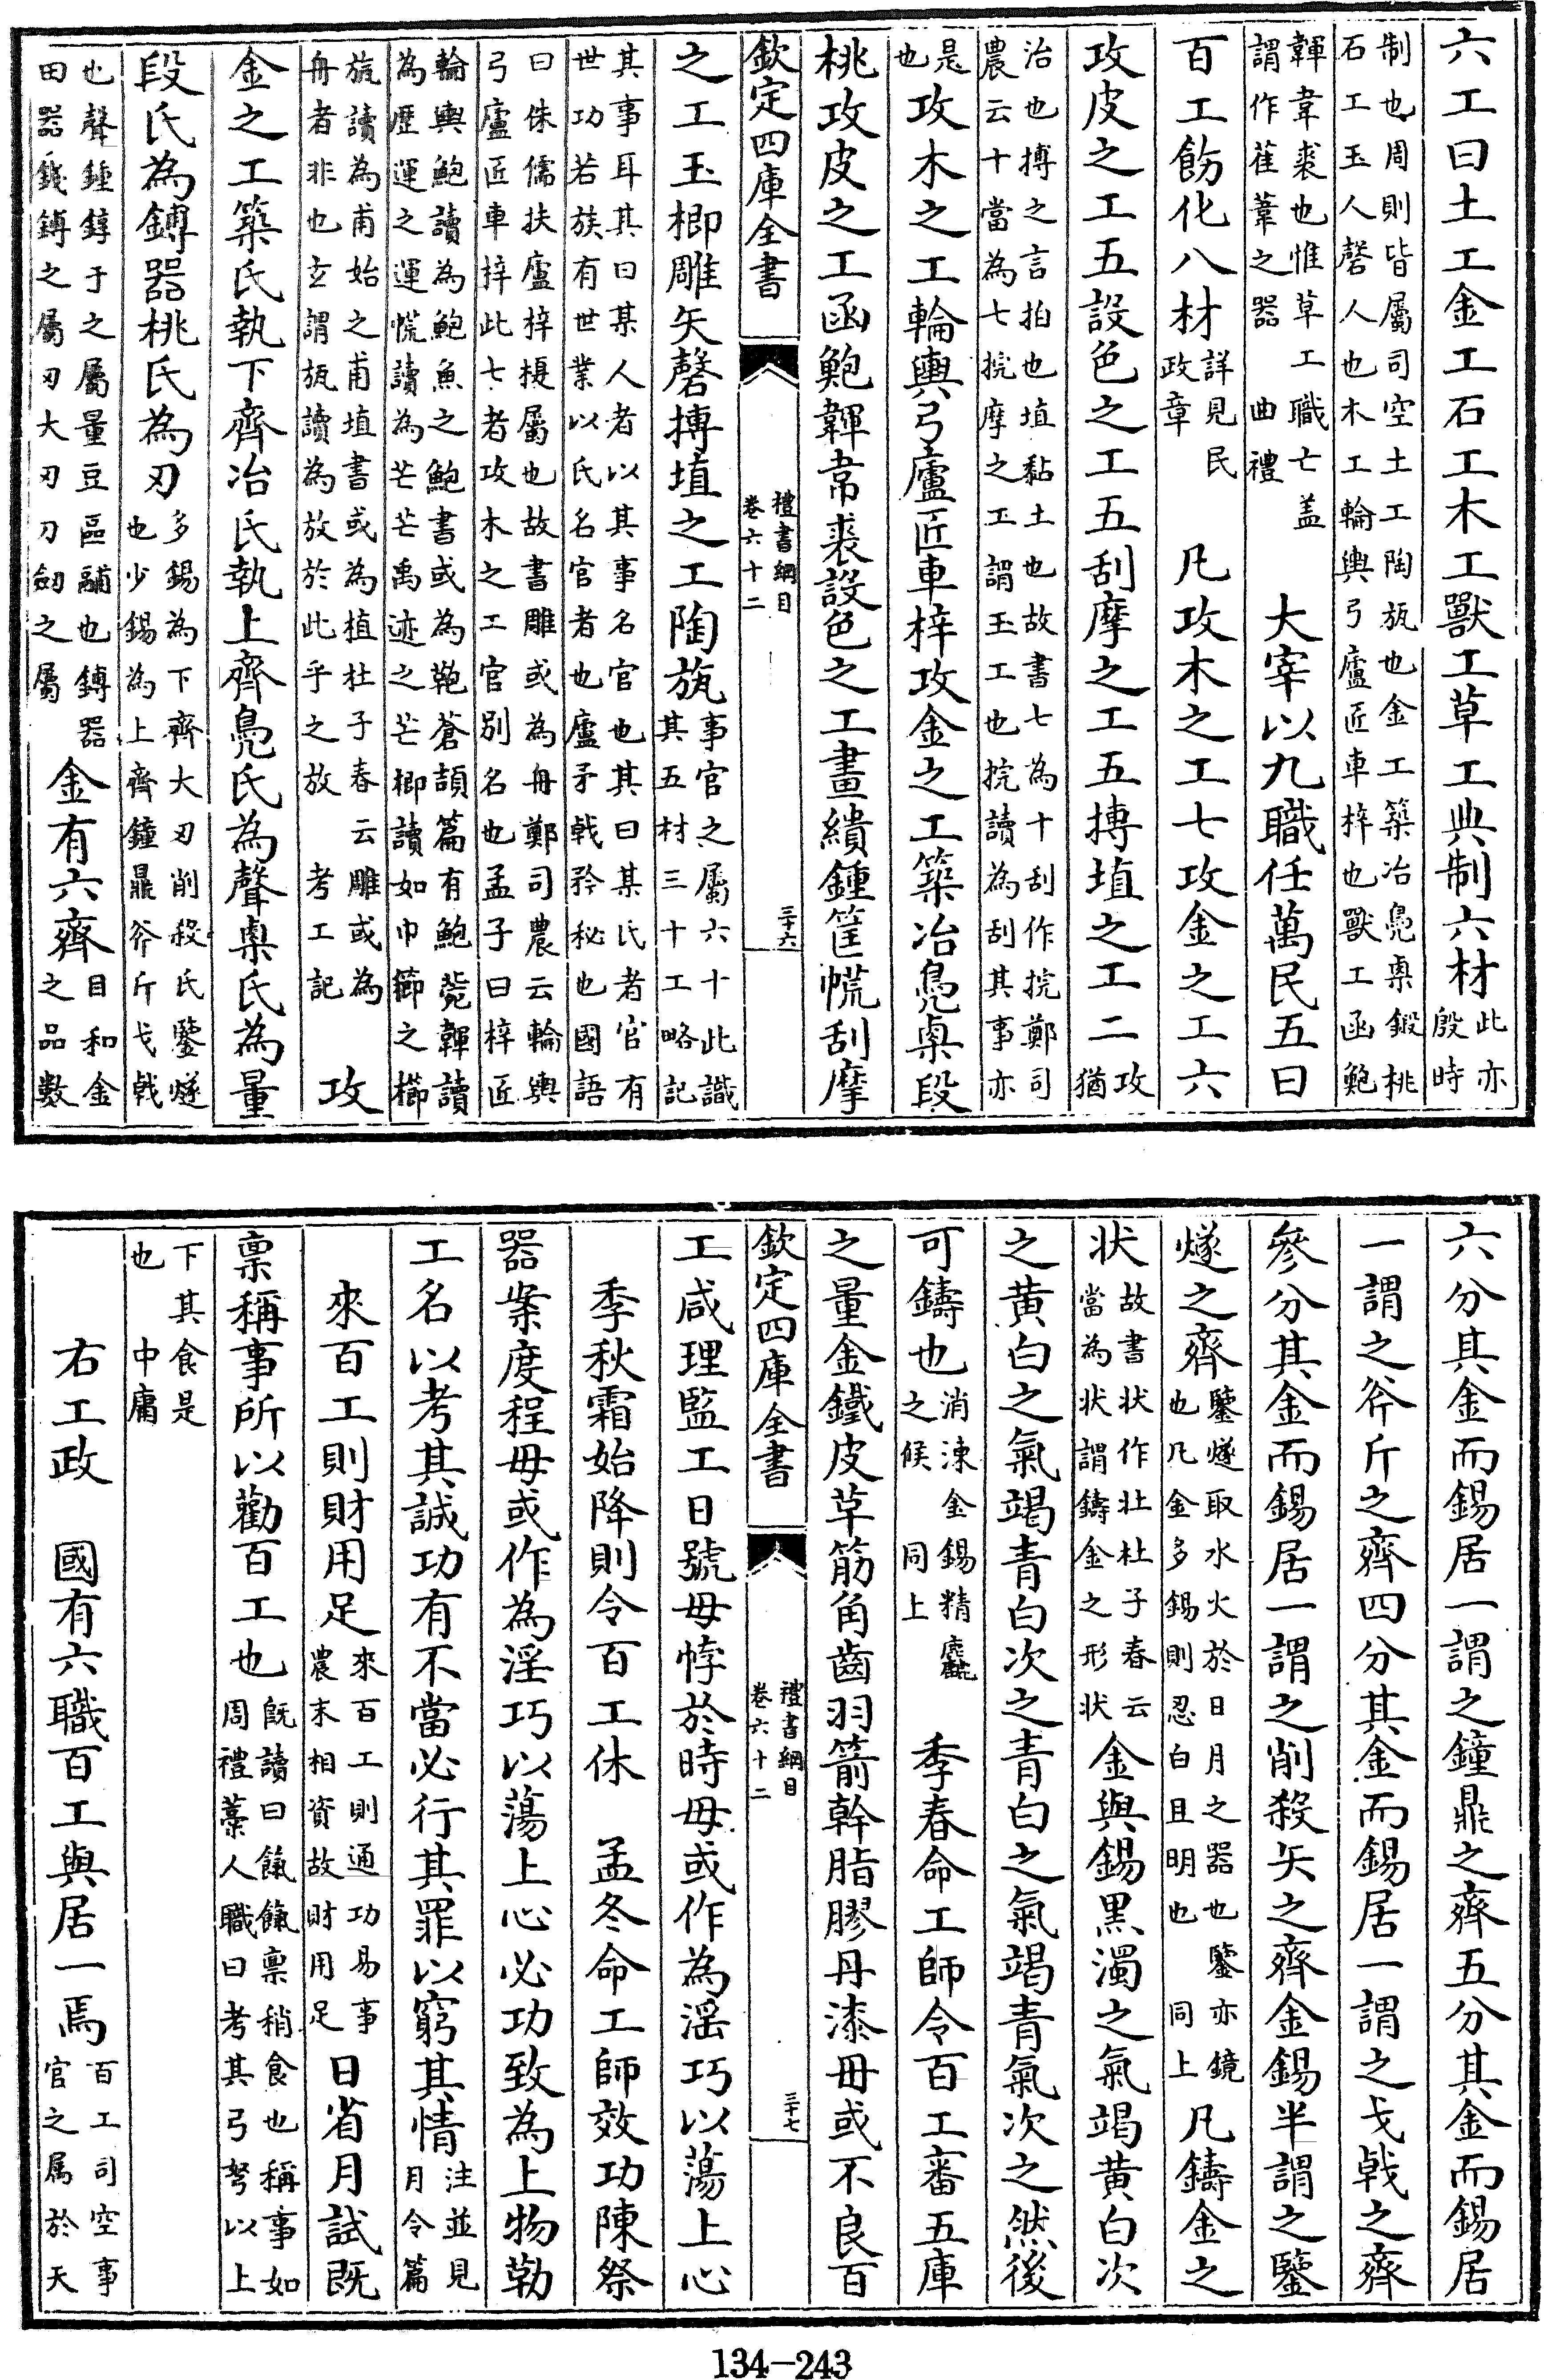 六工曰土工金工石工木工獸工草工典制六材此亦
殷時
制也周則皆屬司空土工陶瓬也金工築冶鳧㮚鍛桃
石工玉人磬人也木工輪輿弓廬匠車梓也獸工函鮑
韗韋裘也惟草工職亡蓋
謂作萑葦之器　曲禮　大宰以九職任萬民五曰
百工飭化八材詳見民
政章　凡攻木之工七攻金之工六
攻皮之工五設色之工五刮摩之工五搏埴之工二攻
猶
治也搏之言拍也埴黏土也故書七為十刮作捖鄭司
農云十當為七捖摩之工謂玉工也捖讀為刮其事亦
是
也攻木之工輪輿弓廬匠車梓攻金之工築冶鳧㮚段
桃攻皮之工函鮑韗韋裘設色之工畫繢鍾筐㡛刮摩
欽定四庫全書
禮書綱目
卷六十二
三十六
之工玉楖雕矢磬搏埴之工陶瓬事官之屬六十此識
其五材三十工略記
其事耳其曰某人者以其事名官也其曰某氏者官有
世功若族有世業以氏名官者也廬矛戟矜柲也國語
曰侏儒扶廬梓榎屬也故書雕或為舟鄭司農云輪輿
弓廬匠車梓此七者攻木之工官別名也孟子曰梓匠
輪輿鮑讀為鮑魚之鮑書或為鞄蒼頡篇有鮑㼱韗讀
為歷運之運㡛讀為芒芒禹迹之芒楖讀如巾櫛之櫛
旊讀為甫始之甫埴書或為植杜子春云雕或為
舟者非也玄謂瓬讀為放於此乎之放　考工記　攻
金之工築氏執下齊冶氏執上齊鳧氏為聲㮚氏為量
段氏為鎛器桃氏為刃多錫為下齊大刃削殺矢鑒燧
也少錫為上齊鐘鼎斧斤戈戟
也聲鍾錞于之屬量豆區鬴也鎛器
田器錢鎛之屬刃大刃刀劒之屬　金有六齊目和金
之品數
六分其金而錫居一謂之鐘鼎之齊五分其金而錫居
一謂之斧斤之齊四分其金而錫居一謂之戈戟之齊
參分其金而錫居一謂之削殺矢之齊金錫半謂之鑒
燧之齊鑒燧取水火於日月之器也鑒亦鏡
也凡金多錫則忍白且明也　同上　凡鑄金之
狀故書狀作壯杜子春云
當為狀狀謂鑄金之形狀　金與錫黑濁之氣竭黃白次
之黃白之氣竭青白次之青白之氣竭青氣次之然後
可鑄也消湅金錫精麤
之候　同上　季春命工師令百工審五庫
之量金鐵皮革筋角齒羽箭幹脂膠丹漆毋或不良百
欽定四庫全書
禮書綱目
卷六十二
三十七
工咸理監工日號毋悖於時毋或作為淫巧以蕩上心
季秋霜始降則令百工休　孟冬命工師效功陳祭
器案度程毋或作為淫巧以蕩上心必功致為上物勒
工名以考其誠功有不當必行其罪以窮其情注並見
月令篇
來百工則財用足來百工則通功易事
農末相資故財用足　日省月試既
稟稱事所以勸百工也既讀曰餼餼稟稍食也稱事如
周禮藁人職曰考其弓弩以上
下其食是
也　中庸
右工政　國有六職百工與居一焉百工司空事
官之屬於天
134-243